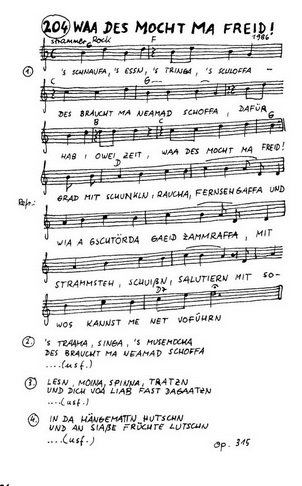 204 WAA DES MOCHT MA FREID!
strammer Rock
1986
C G F
1. 'S SCHNAUFA, 'S ESSN, 'S TRINGA, 'S SCHLOFFA -
C G
DES BRAUCHT MA NEAMAD SCHOFFA, DAFÜR
B C G
HAB I OWEI ZEIT, WAA DES MOCHT MA FREID!
D
Refr.: GRAD MIT SCHUNKLN, RAUCHA, FERNSEHGAFFA UND
WIA A GSCHTÖRDA GAEID ZAMMRAFFA, MIT
STRAMMSTEH, SCHUIßN, SALUTIERN MIT SO-
D7 G
WOS KANNST ME NET VOFÜHRN
2. 'S TRAAMA, SINGA, 'S MUSEMOCHA
DES BRAUCHT MA NEAMAD SCHOFFA
....(usf.)
3. LESN, MOINA, SPINNA, TRATZN
UND DICH VOA LIAB FAST DAGAATZN
....(usf.)
4. IN DA HÄNGEMATTN HUTSCHN
UND AN SIAßE FRÜCHTE LUTSCHN
....(usf.)
op. 315